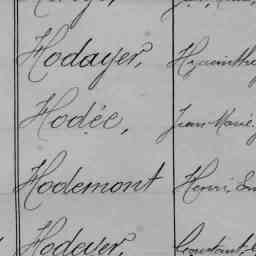 Hodayer, Hyacinthe
Hodée, Jean Marie,
Hodemont Henri,
Hodeyer, Constant,